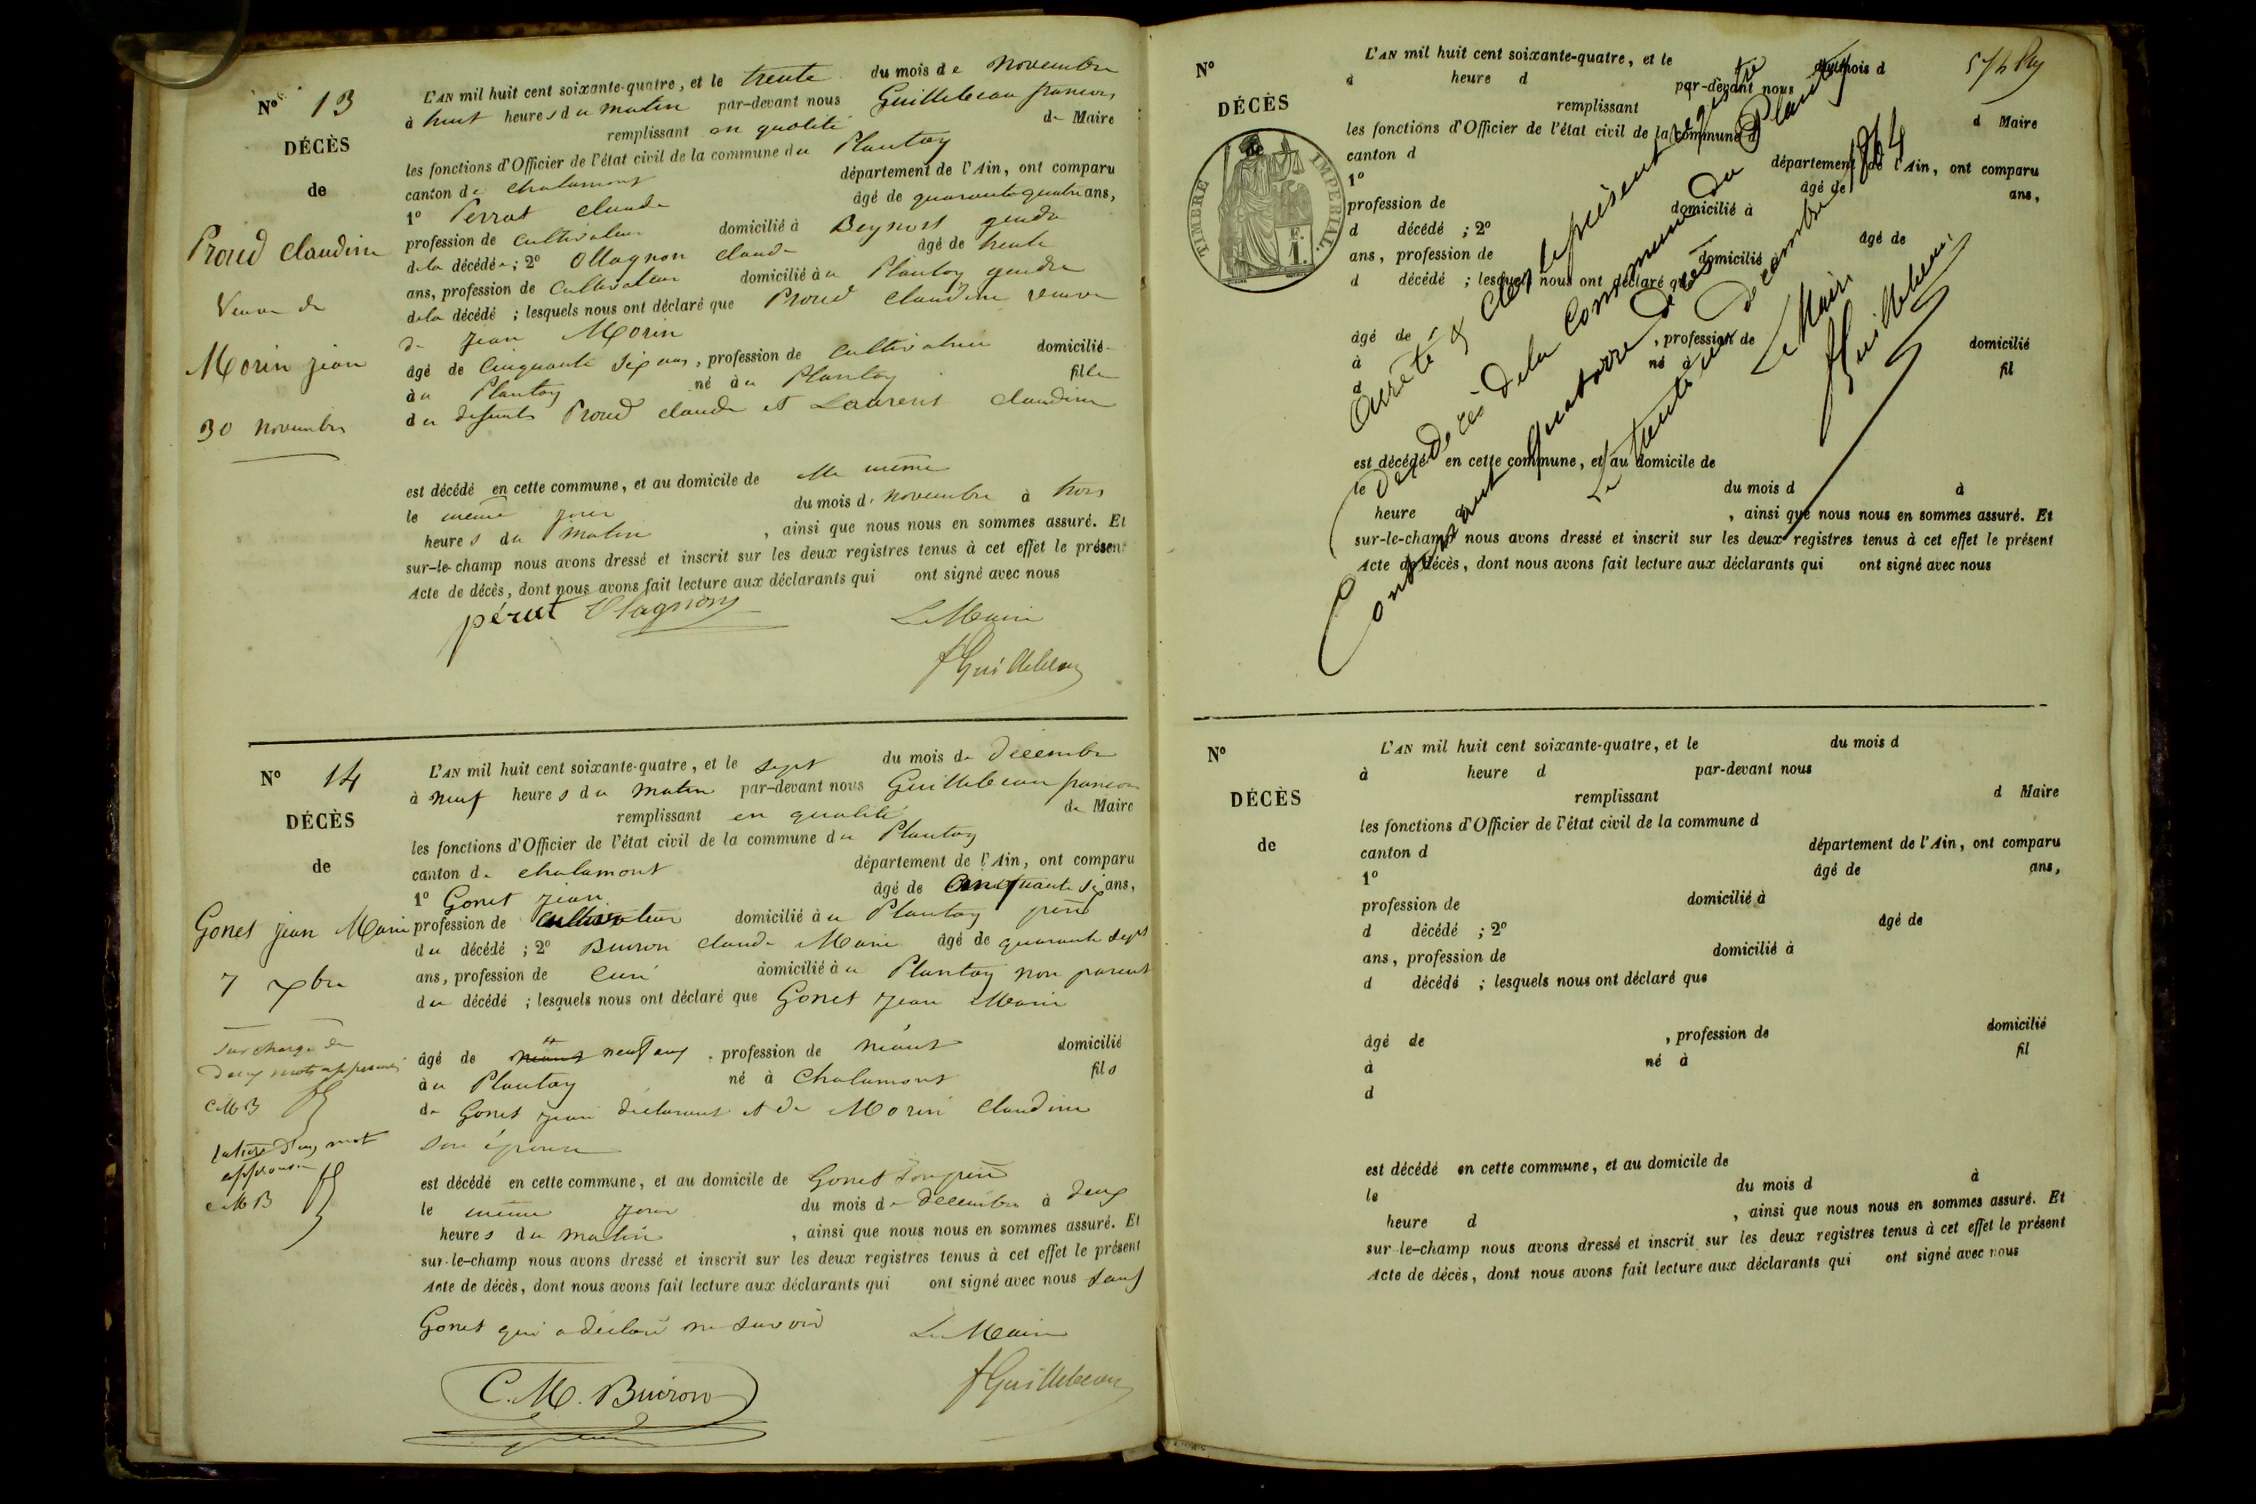 No 13
DÉCÈS
de
Proud Claudine
Veuve de
Morin jean
30 novembre
L'AN mil huit cent soixante-quatre, et le trente du mois de novembre
à huit heures du matin par-devant nous Guillebeau francois
remplissant en qualité de Maire
les fonctions d'Officier de l'état civil de la commune du Plantay
canton de chalamont département de l'Ain, ont comparu
1º Perrat claude âgé de quarante quatre ans,
profession de cultivateur domicilié à Beynost gendre
de la décédée ; 2º Ollagnon claude âgé de trente
ans, profession de cultivateur domicilié au Plantay gendre
de la décédé ; lesquels nous ont déclaré que Proud claudine veuve
de jean Morin
âgé de cinquante six ans, profession de cultivatrice domicilié
au Plantay né au Plantay fille
des defunts Proud claude et Laurent claudine
est décédé en cette commune, et au domicile de elle même
le même jour du mois de novembre à trois
heures du matin, ainsi que nous nous en sommes assuré. Et
sur-le-champ nous avons dressé et inscrit sur les deux registres tenus à cet effet le présent
Acte de décès, dont nous avons fait lecture aux déclarants qui ont signé avec nous
pérat Olagnon Le Maire
f Guillebeau
No 14
DÉCÈS
de
Gonet jean Marie
7 xbre
Surcharge de
deux mots approuvés
CMB
rature d'un mot
approuvée
CMB
L'AN mil huit cent soixante-quatre, et le sept du mois de décembre
à neuf heures du matin par-devant nous Guillebeau francois
remplissant en qualité de Maire
les fonctions d'Officier de l'état civil de la commune du Plantay
canton de chalamont département de l'Ain, ont comparu
1º Gonet jean âgé de cinquante six ans,
profession de cultivateur domicilié au Plantay père
du décédé ; 2º Buiron claude Marie âgé de quarante sept
ans, profession de curé domicilié au Plantay non parent
du décédé ; lesquels nous ont déclaré que Gonet jean Marie
âgé de neuf ans, profession de néant domicilié
au Plantay né à Chalamont fils
de Gonet jean déclarant et de Morin claudine
son épouse
est décédé en cette commune, et au domicile de Gonet son père
le même jour du mois de décembre à deux
heures du matin, ainsi que nous nous en sommes assuré. Et
sur-le-champ nous avons dressé et inscrit sur les deux registres tenus à cet effet le présent
Acte de décès, dont nous avons fait lecture aux déclarants qui ont signé avec nous sauf
Gonet qui a déclaré ne savoir Le Maire
C. M. Buiron f Guillebeau
No
DÉCÈS
de
TIMBRE IMPÉRIAL.
L'AN mil huit cent soixante-quatre, et le du mois d
à heure d par-devant nous
remplissant d Maire
les fonctions d'Officier de l'état civil de la commune d
canton d département de l'Ain, ont comparu
1º âgé de ans,
profession de domicilié à
d décédé ; 2º âgé de
ans, profession de domicilié à
d décédé ; lesquels nous ont déclaré que
âgé de , profession de domicilié
à né à fil
d
est décédé en cette commune, et au domicile de
le du mois d à
heure d , ainsi que nous nous en sommes assuré. Et
sur-le-champ nous avons dressé et inscrit sur les deux registres tenus à cet effet le présent
Acte de décès, dont nous avons fait lecture aux déclarants qui ont signé avec nous
arrêté & clos le présent registre
des décès de la Commune du Plantay
Contenant quatorze décès
Le trente un décembre 1864
Le Maire
f Guillebeau
No
DÉCÈS
de
L'AN mil huit cent soixante-quatre, et le du mois d
à heure d par-devant nous
remplissant d Maire
les fonctions d'Officier de l'état civil de la commune d
canton d département de l'Ain, ont comparu
1º âgé de ans,
profession de domicilié à
d décédé ; 2º âgé de
ans, profession de domicilié à
d décédé ; lesquels nous ont déclaré que
âgé de , profession de domicilié
à né à fil
d
est décédé en cette commune, et au domicile de
le du mois d à
heure d , ainsi que nous nous en sommes assuré. Et
sur-le-champ nous avons dressé et inscrit sur les deux registres tenus à cet effet le présent
Acte de décès, dont nous avons fait lecture aux déclarants qui ont signé avec nous